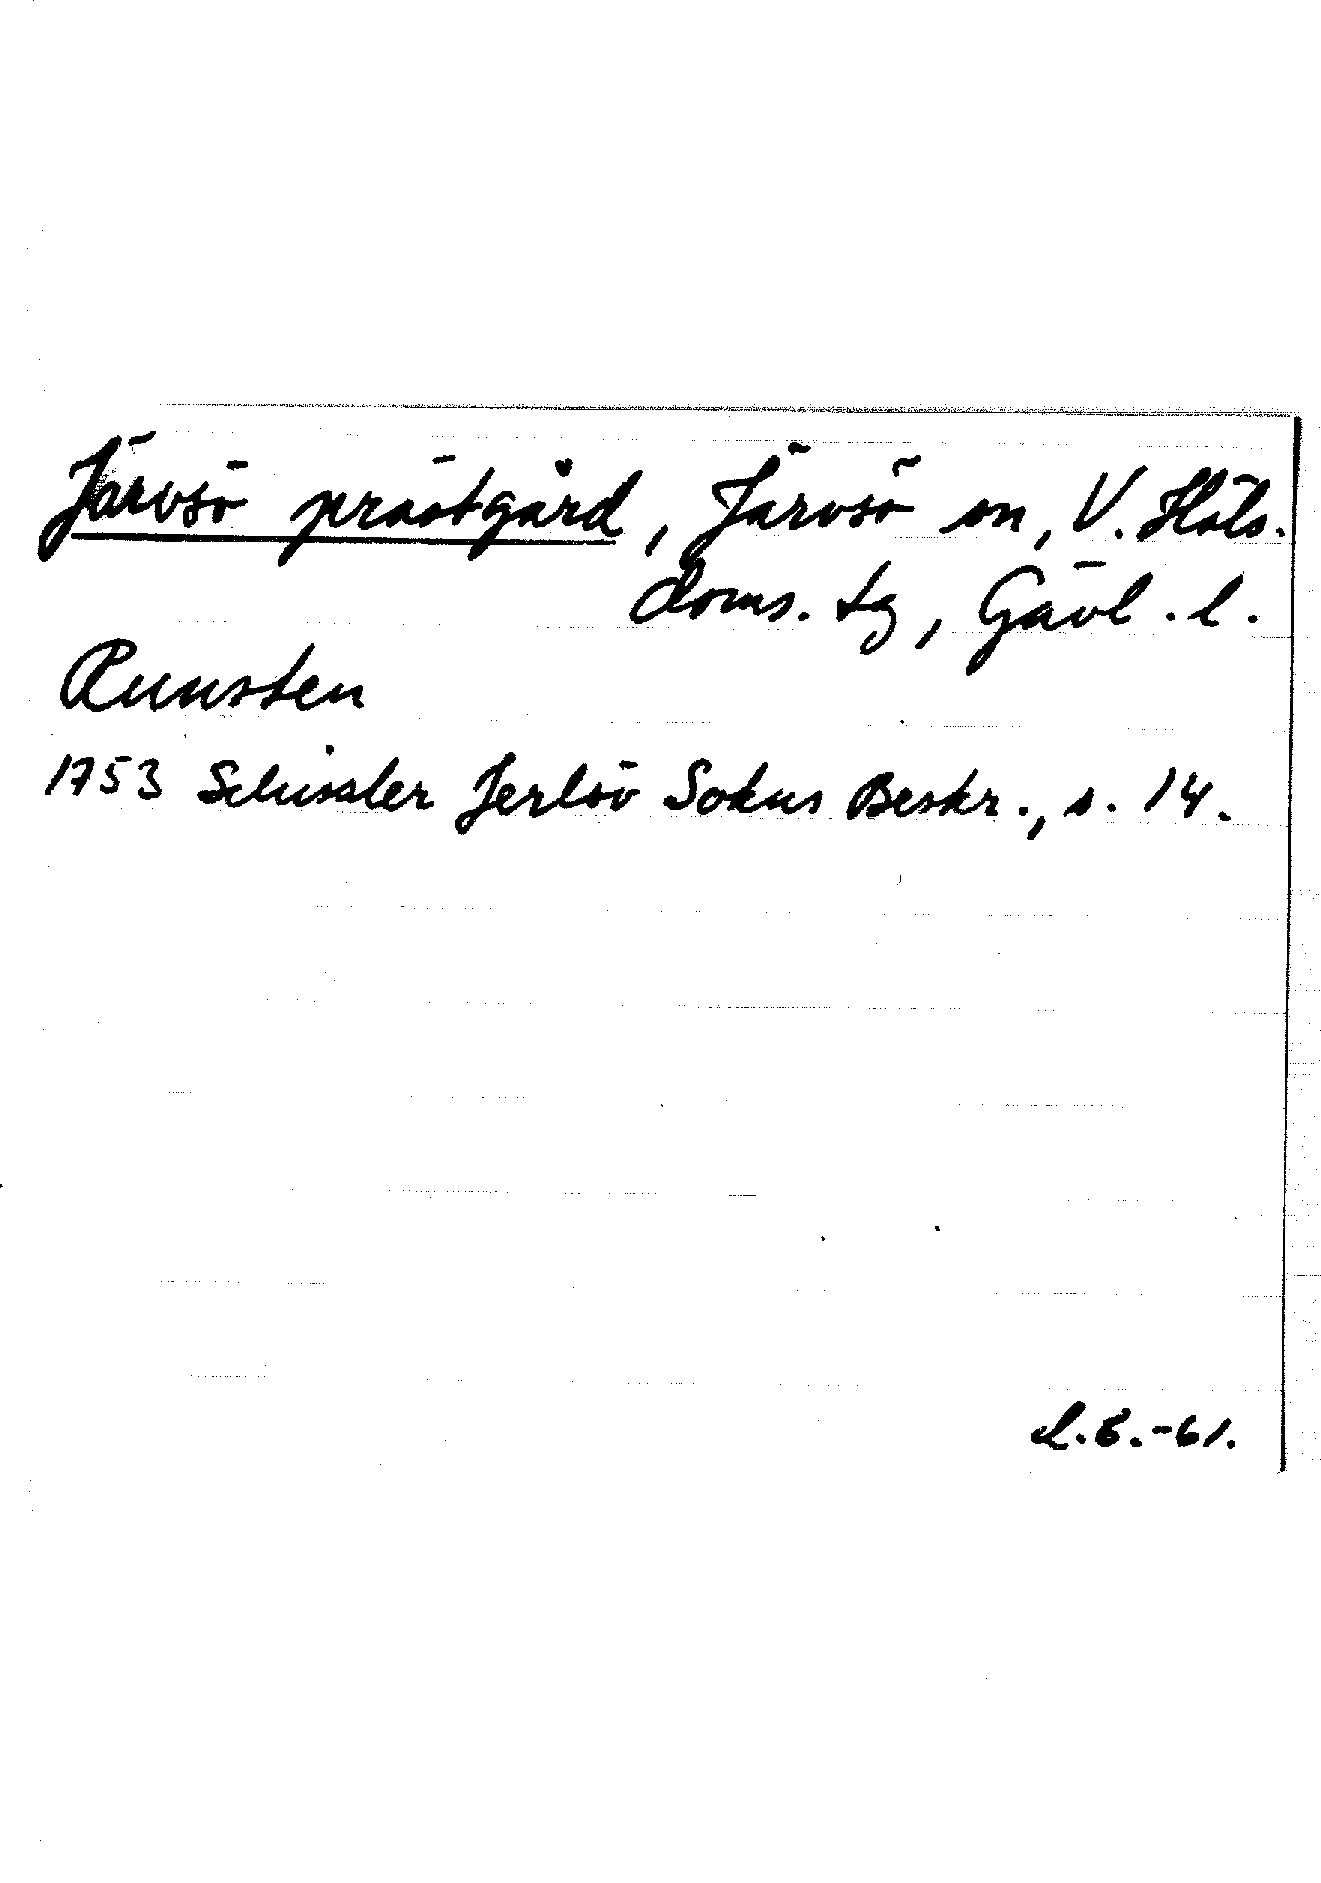 Järvsö prästgård, Järvsö sn, V. Häls.
doms. tg, Gävl. l.
Runsten
1753 Schissler Jerlsöv Sokns Beskr., s. 14.
L.E.-61.